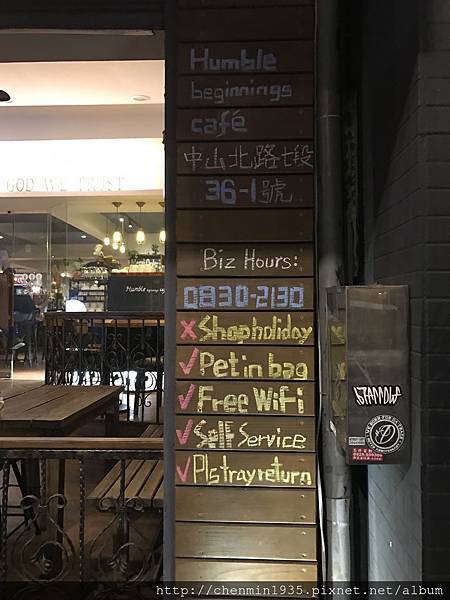 Humble
beginnings
café
中山北路七段
36-1號
GOD WE TRUST
Biz Hours:
0830-2130
Humble
x Shop holiday
✓ Pet in bag
✓ Free WiFi
✓ Self Service
✓ Pls tray return
http://chenmin1935.pixnet.net/album